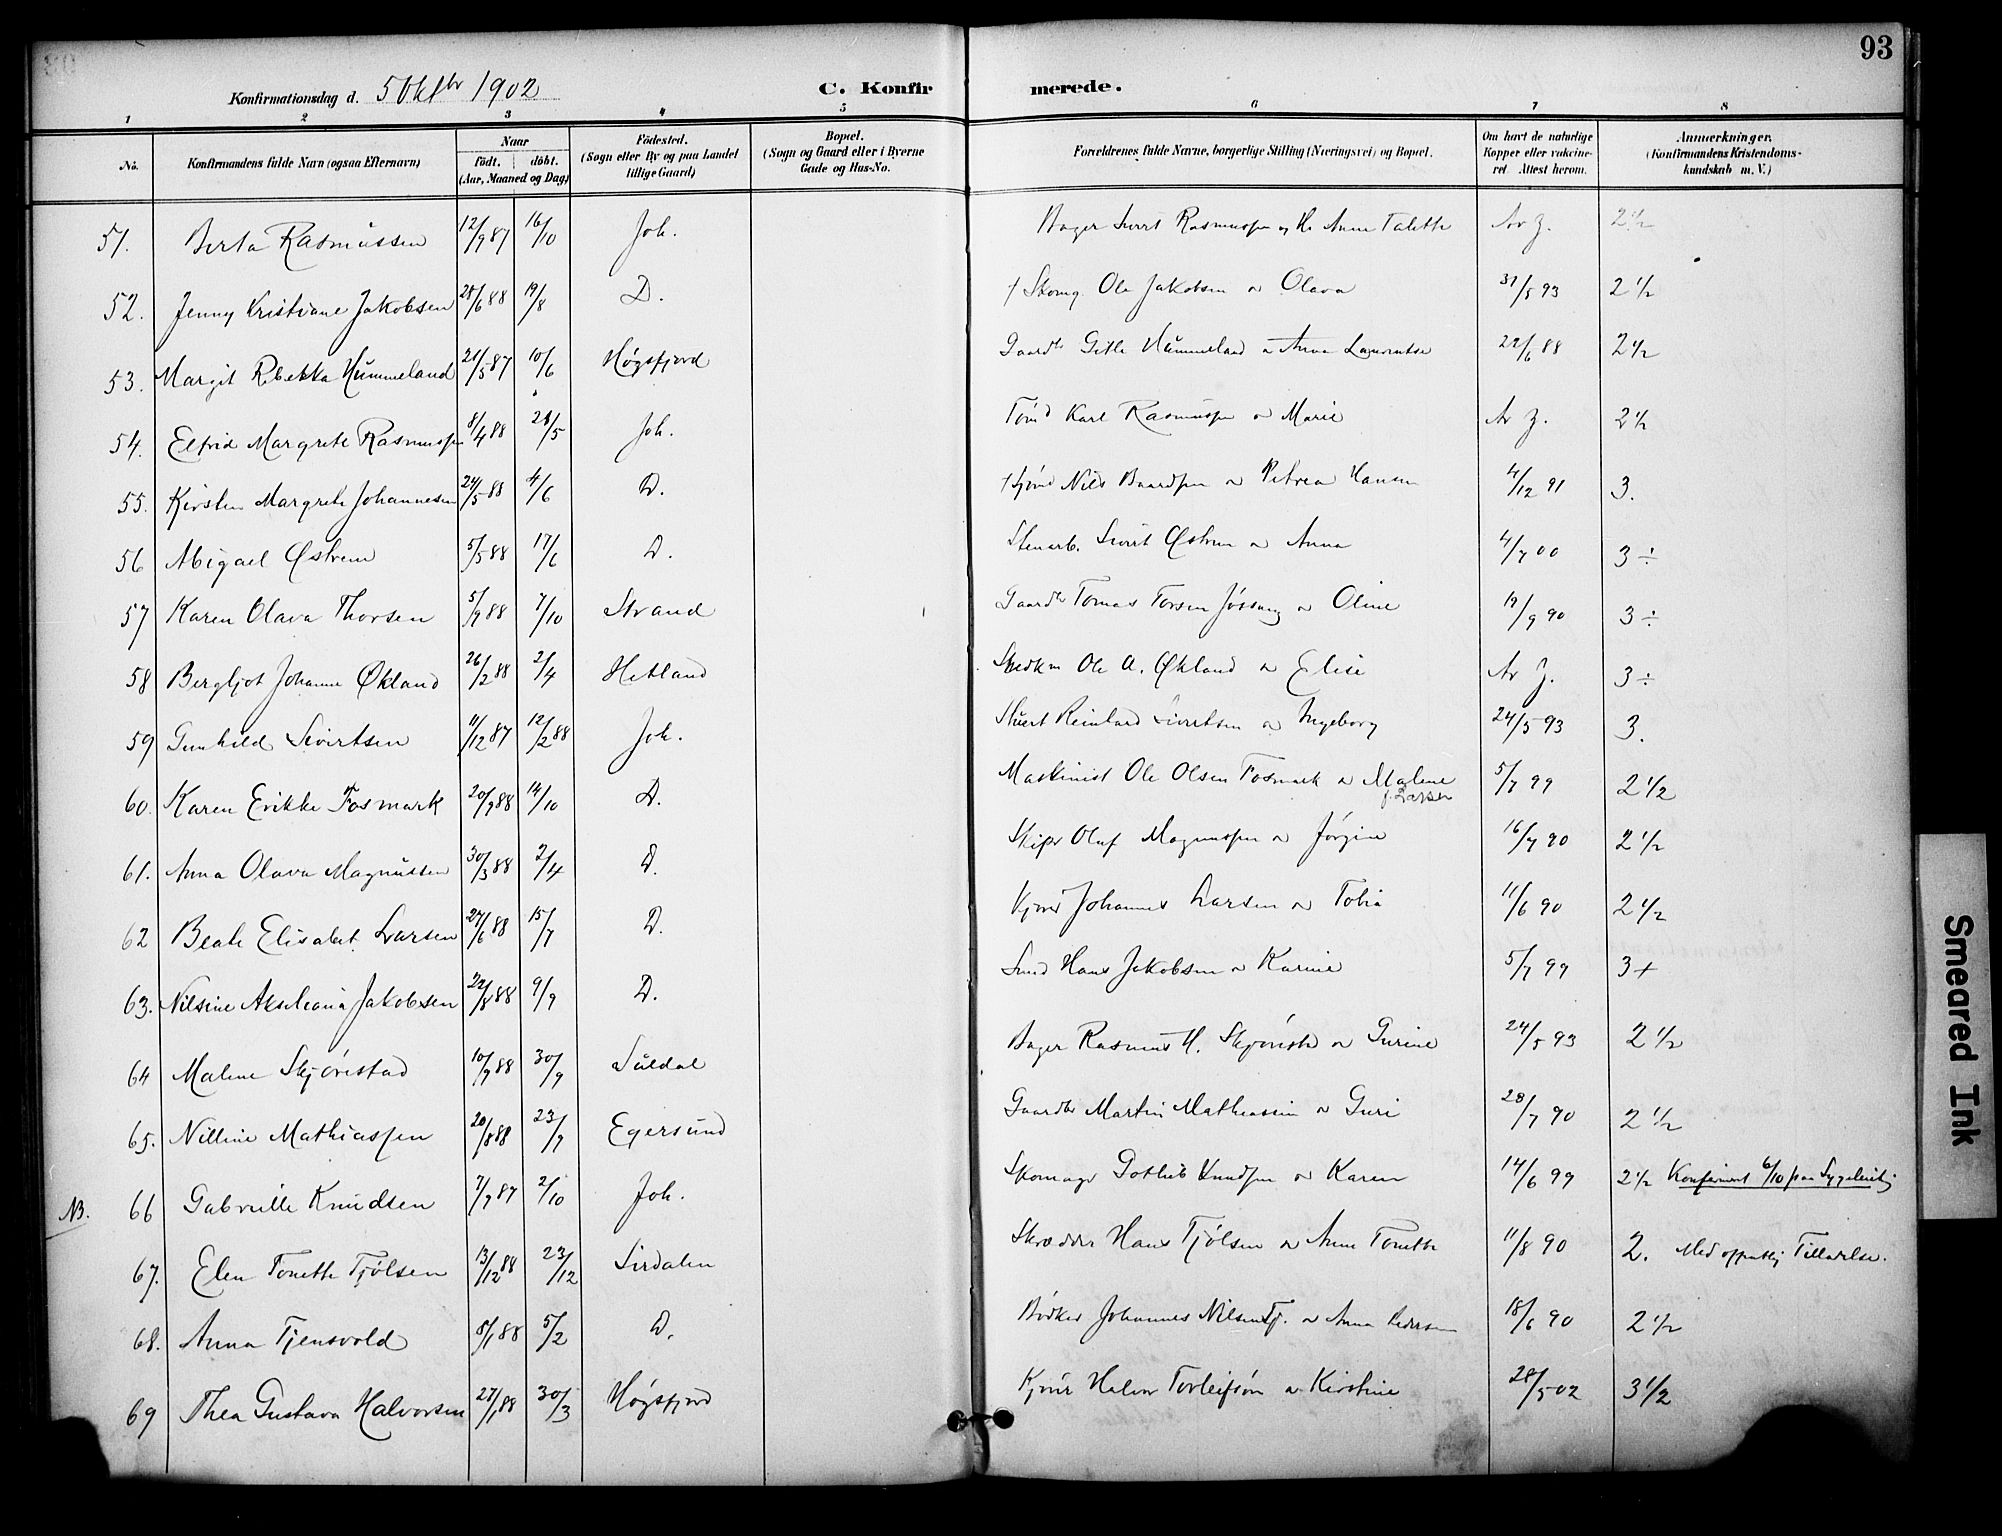 93
Konfirmationsdag d. 5 Oktbr 1902
C. Konfirmerede.
1 2 3 4 5 6 7 8
No.
Konfirmandens fulde Navn (ogsaa Efternavn)
Naar født. døbt. (Aar, Maaned og Dag)
Födested. (Sogn eller By og paa Landet tillige Gaard)
Bopæl. (Sogn og Gaard eller i Byerne Gade og Hus-No.
Forældrenes fulde Navne, borgerlige Stilling (Næringsvei) og Bopæl.
Om havt de naturlige Kopper eller vaccineret. Attest herom.
Anmærkninger. (Konfirmandens Kristendomskundskab m. V.)
51. Berta Rasmussen 12/9 87 16/10 Joh. Bager Sivert Rasmussen og Anne Talette 2 1/2
52. Jenny Kristiane Jakobsen 28/6 88 19/8 D. † Skomg. Ole Jakobsen Olava 31/5 93 2 1/2
53. Margit Rebekka Hummeland 21/5 87 10/6 Høgsfjord Gaardbr Gitle Hummeland Anna 22/6 88 2 1/2
54. Elfrid Margrete Rasmussen 8/4 88 21/5 Joh. Karl Rasmussen Marie 2 1/2
55. Kirsten Margrete Johannesen 24/5 88 4/6 D. Nils Petrea Hansen 4/12 91 3.
56 Abigael Østrem 5/5 88 17/6 D. Stenarb. Sivert Østrem Anna 4/7 00 3 ÷
57 Karen Olava Thorsen 5/9 88 7/10 Strand Gaardbr Tomas Torsen Jøssang Oline 19/9 90 3 ÷
58 Bergljot Johanne Økland 26/2 88 2/4 Hetland Ole A. Økland Elise 3 ÷
59 Gunhild Sivertsen 11/12 87 12/2 88 Joh. Reinhard Sivertsen Ingeborg 24/5 93 3.
60. Karen Erikke Fosmark 20/9 88 14/10 D. Maskinist Ole Olsen Fosmark Malene f. Larsen 5/7 99 2 1/2
61. Anna Olava Magnussen 30/3 88 2/4 D. Skipr Oluf Magnussen Jørgine 16/7 90 2 1/2
62 Beate Elisabet Larsen 27/6 88 15/7 D. Johannes Larsen Tobia 11/6 90 2 1/2
63. Nilsine Jakobsen 22/8 88 9/9 D. Smed Hans Jakobsen Karine 5/7 99 3 +
64 Malene Skjørestad 10/9 88 30/9 Suldal Bager Rasmus H. Gurine 24/5 93 2 1/2
65. Nilline Mathiassen 20/8 88 23/9 Egersund Gaardbr Martin Mathiassen Guri 28/7 90 2 1/2
NB. 66 Gabrielle Knudsen 7/9 87 2/10 Joh. Skomagr Gotlieb Knudsen Karen 14/6 99 2 1/2 Konfirmert 6/10 paa
67. Elen Tonette Tjølsen 13/12 88 23/12 Sirdalen Skrædder Hans Tjølsen Anne Tonette 11/8 90 2. Med Tilladelse.
68. Anna Tjensvold 8/1 88 5/2 D. Bødker Johannes Nilsen Tj. Anna Pedersen 18/6 90 2 1/2
69 Thea Gustava Halvorsen 27/1 88 30/3 Høgsfjord Halvor Torleifsøn Kirstine 28/5 02 3 1/2
Smeared Ink